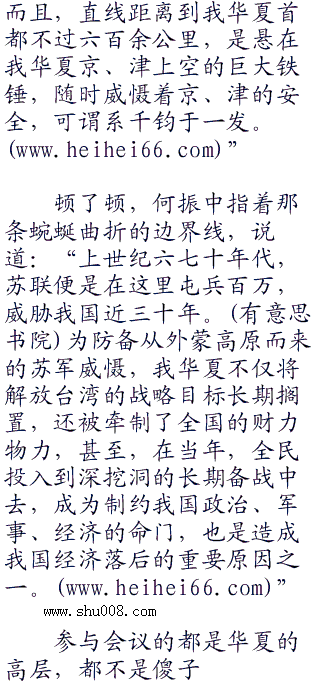 而且，直线距离到我华夏首
都不过六百余公里，是悬在
我华夏京、津上空的巨大铁
锤，随时威慑着京、津的安
全，可谓系千钧于一发。
(www.heihei66.com)”
顿了顿，何振中指着那
条蜿蜒曲折的边界线，说
道：“上世纪六七十年代，
苏联便是在这里屯兵百万，
威胁我国近三十年。(有意思
书院)为防备从外蒙高原而来
的苏军威慑，我华夏不仅将
解放台湾的战略目标长期搁
置，还被牵制了全国的财力
物力，甚至，在当年，全民
投入到深挖洞的长期备战中
去，成为制约我国政治、军
事、经济的命门，也是造成
我国经济落后的重要原因之
一。(www.heihei66.com)”
www.shu008.com
参与会议的都是华夏的
高层，都不是傻子